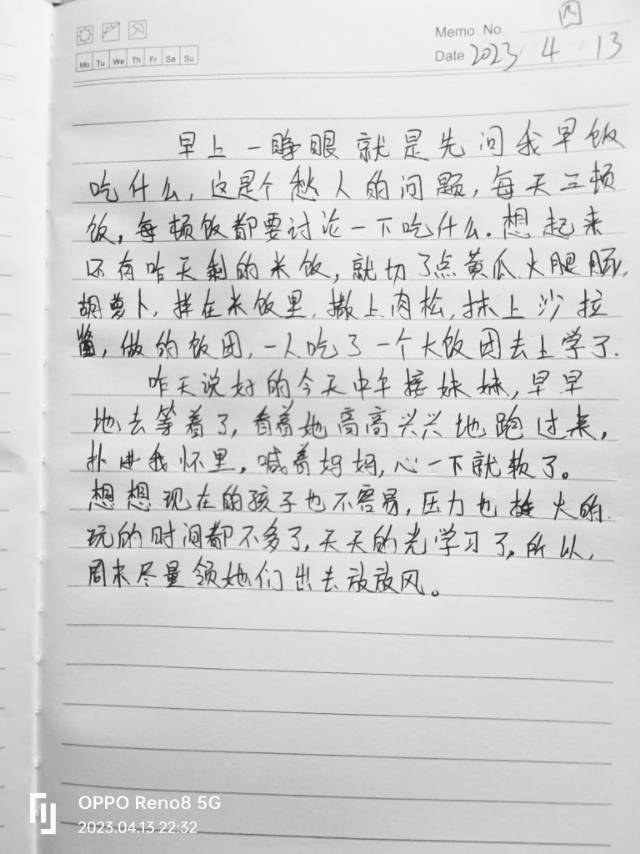 四
Memo No.
Date 2023 4 13
Mo Tu We Th Fr Sa Su
早上一睁眼就是先问我早饭
吃什么,这是个愁人的问题,每天三顿
饭,每顿饭都要讨论一下吃什么.想起来
还有昨天剩的米饭,就切了点黄瓜火腿肠,
胡萝卜,拌在米饭里,撒上肉松,抹上沙拉
酱,做的饭团,一人吃了一个大饭团去上学了.
昨天说好的今天中午接妹妹,早早
地去等着了,看着她高高兴兴地跑过来,
扑进我怀里,喊着妈妈,心一下就软了。
想想现在的孩子也不容易,压力也挺大的
玩的时间都不多了,天天的光学习了,所以,
周末尽量领她们出去放放风。
OPPO Reno8 5G
2023.04.13 22:32